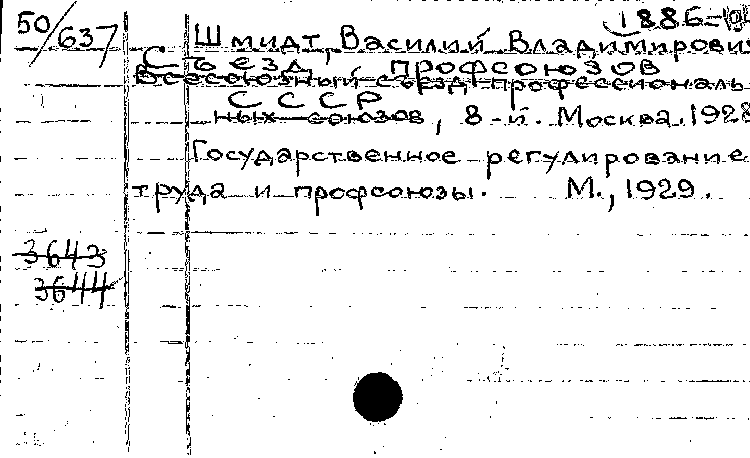 50/637
1886-
Шмидт, Василий Владимирович
Съезд профсоюзов
Всесоюзный съезд профессиональ-
СССР
ных союзов, 8-й. Москва. 1928
Государственное регулирование
труда и профсоюзы. М., 1929.
3643
3644